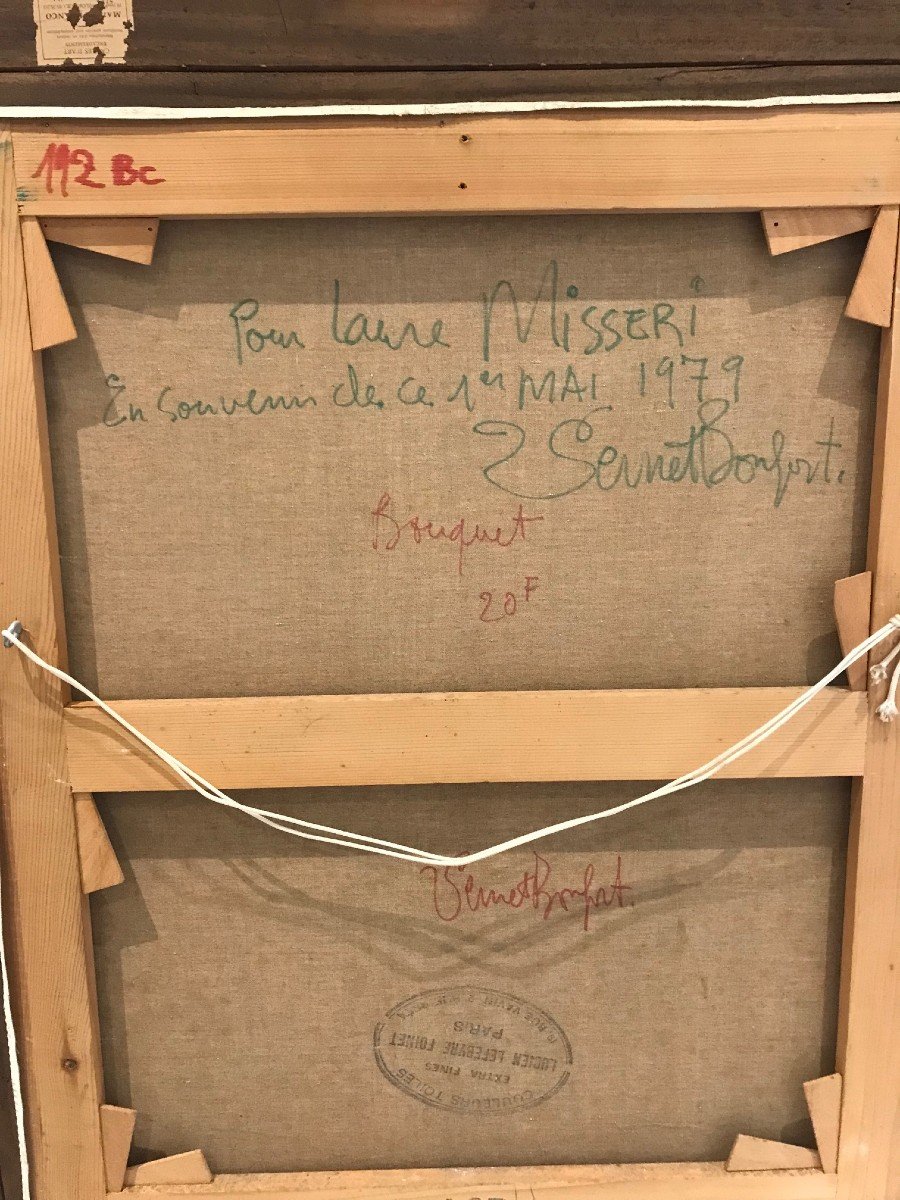 192 Bc
Pour Laure MISSERI
En souvenir de ce 1er MAI 1979
VernetBonfort.
Bouquet
20F
VernetBonfort.
COULEURS TOILES
EXTRA FINES
LUCIEN LEFEBVRE FOINET
PARIS
RUE VAVIN